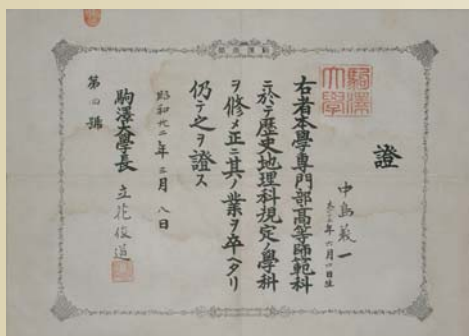 證
中島義一
年六月一日生
右者本學專門部高等師範科
ニ於テ歴史地理科規定ノ學科
ヲ修メ正ニ其ノ業ヲ卒ヘタリ
仍テ之ヲ證ス
昭和廿二年三月八日
駒澤大學長 立花俊道
第四號
駒澤大學